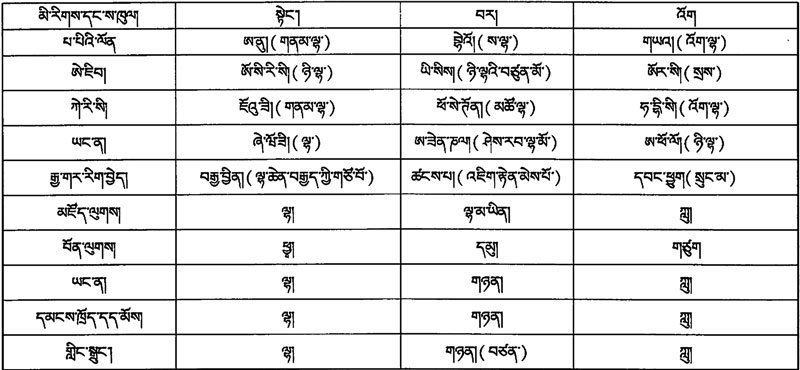 མི་རིགས་དང་ས་ཁུལ། སྟེང་། བར། འོག
པ་པིའི་ལོན ཨ་ནུ།(གནམ་ལྷ་) བྷེའོ།(ས་ལྷ་) གཡའ།(འོག་ལྷ་)
ཨེ་ཇིབ། ཨོ་སི་རི་སི།(ཉི་ལྷ་) ཡི་སིས།(ཉི་ལྷའི་བཙུན་མོ་) ཨོར་སི།(སྲས་)
ཀེ་རི་སི། ཇོའུ་ཟི།(གནམ་ལྷ་) ཕོ་སེ་ཏོན།(མཚོ་ལྷ་) ཧ་ཏྷི་སི།(འོག་ལྷ་)
ཡང་ན། ཞེ་ཝོ་ཟི།(ལྷ་) ཨ་ཟེན་ཎལ།(ཤེས་རབ་ལྷ་མོ་) ཨ་ཕོ་ལོ།(ཉི་ལྷ་)
རྒྱ་གར་རིག་བྱེད། བརྒྱ་བྱིན།(ལྷ་ཆེན་བརྒྱད་ཀྱི་གཙོ་བོ་) ཚངས་པ།(འཇིག་རྟེན་མེས་པོ་) དབང་ཕྱུག(སྲུང་མ་)
མཛོད་ལུགས། ལྷ། ལྷ་མ་ཡིན། ཀླུ།
བོན་ལུགས། ཕྱྭ། དམུ། གཙུག
ཡང་ན། ལྷ། གཉན། ཀླུ།
དམངས་ཁྲོད་དད་མོས། ལྷ། གཉན། ཀླུ།
གླིང་སྒྲུང་། ལྷ། གཉན།(བཙན་) ཀླུ།